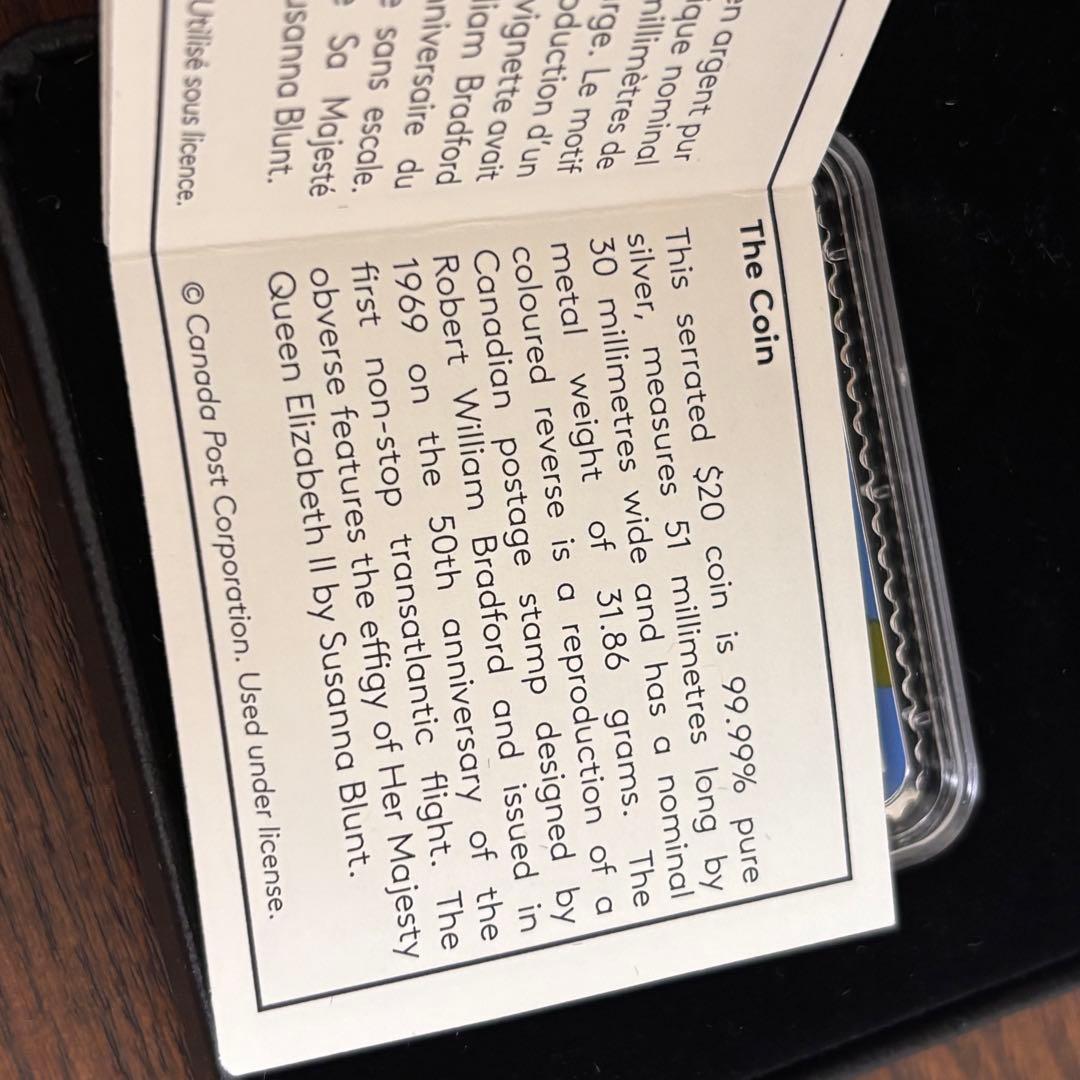 en argent pur
ique nominal
millimètres de
rge. Le motif
oduction d'un
vignette avait
liam Bradford
niversaire du
e sans escale.
e Sa Majesté
usanna Blunt.
Utilisé sous licence.
The Coin
This serrated $20 coin is 99.99% pure
silver, measures 51 millimetres long by
30 millimetres wide and has a nominal
metal weight of 31.86 grams. The
coloured reverse is a reproduction of a
Canadian postage stamp designed by
Robert William Bradford and issued in
1969 on the 50th anniversary of the
first non-stop transatlantic flight. The
obverse features the effigy of Her Majesty
Queen Elizabeth II by Susanna Blunt.
© Canada Post Corporation. Used under license.